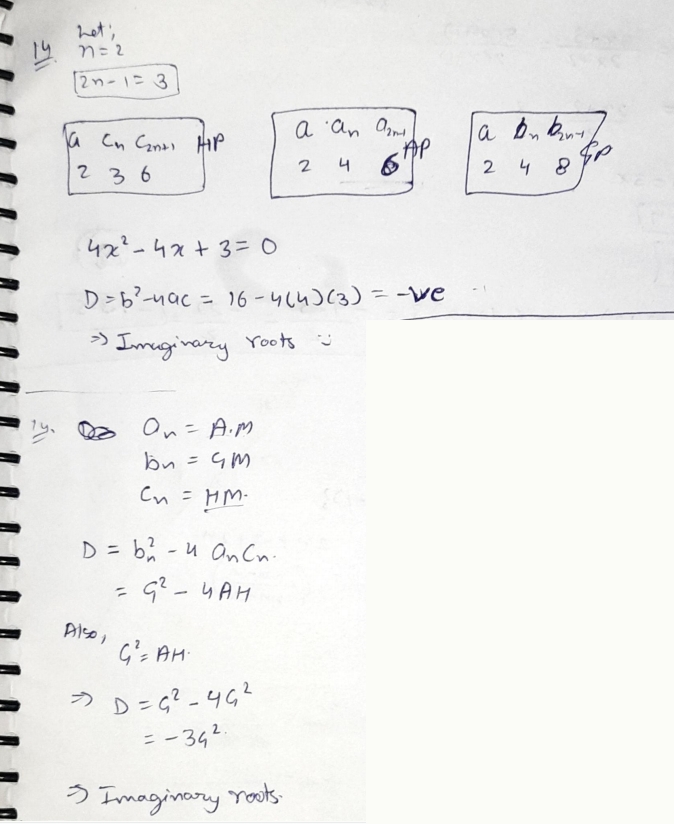 14 Let;
n=2
2n-1=3
a Cn C2n+1 HP
2 3 6
a an a2n-1 AP
2 4 6
a bn b2n-1 GP
2 4 8
4x² - 4x + 3 = 0
D = b² - 4ac = 16 - 4(4)(3) = -ve
⇒ Imaginary roots
14. an = A.M
bn = GM
Cn = HM.
D = bn² - 4 anCn.
= G² - 4AH
Also,
G² = AH.
⇒ D = G² - 4G²
= -3G².
⇒ Imaginary roots.